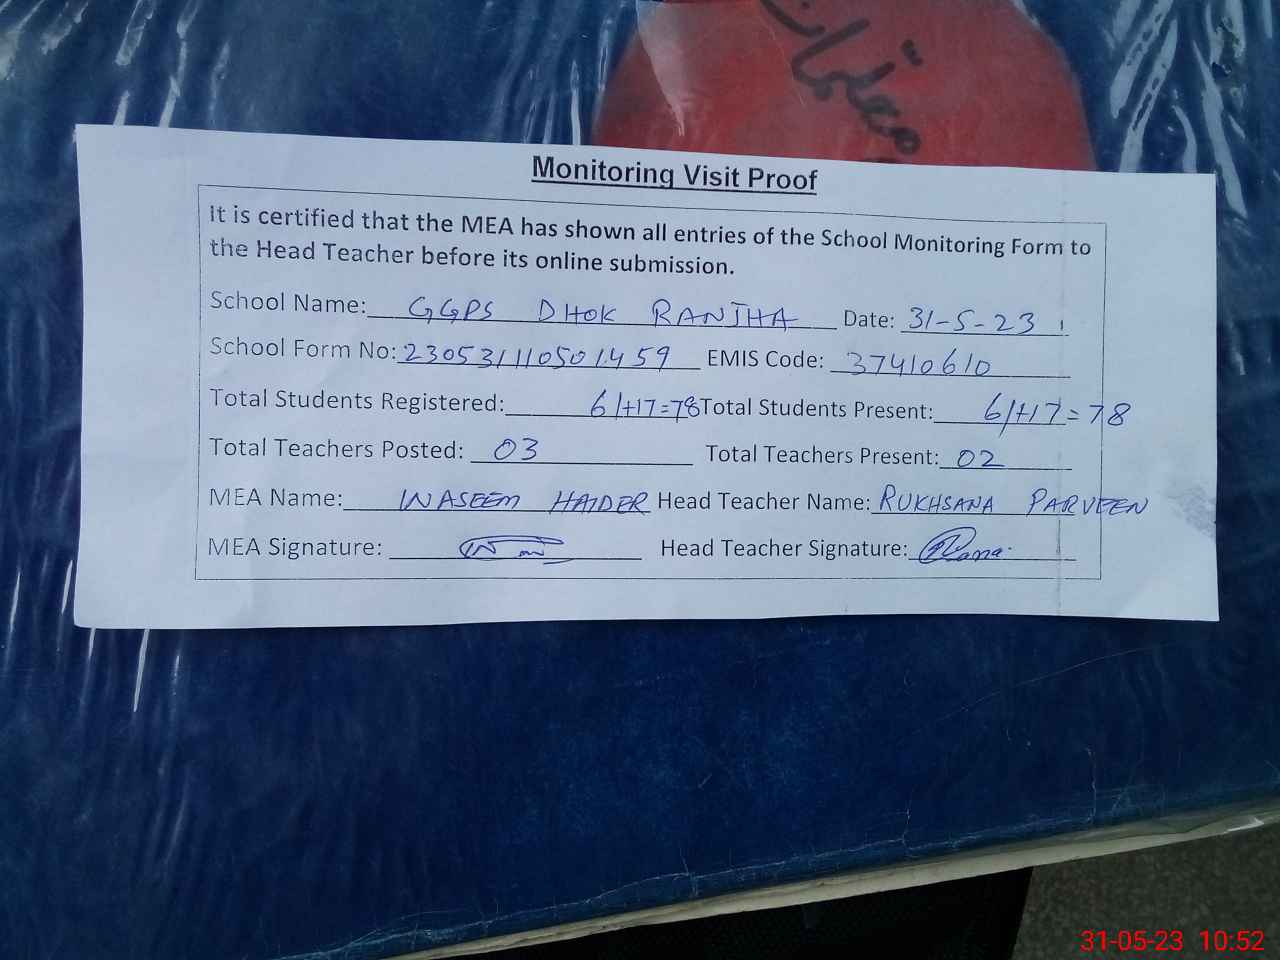 معلومات
Monitoring Visit Proof
It is certified that the MEA has shown all entries of the School Monitoring Form to
the Head Teacher before its online submission.
School Name: GGPS DHOK RANJHA Date: 31-5-23
School Form No: 230531110501459 EMIS Code: 37410610
Total Students Registered: 61+17=78 Total Students Present: 61+17=78
Total Teachers Posted: 03 Total Teachers Present: 02
MEA Name: WASEEM HAIDER Head Teacher Name: RUKHSANA PARVEEN
MEA Signature: Head Teacher Signature:
31-05-23 10:52